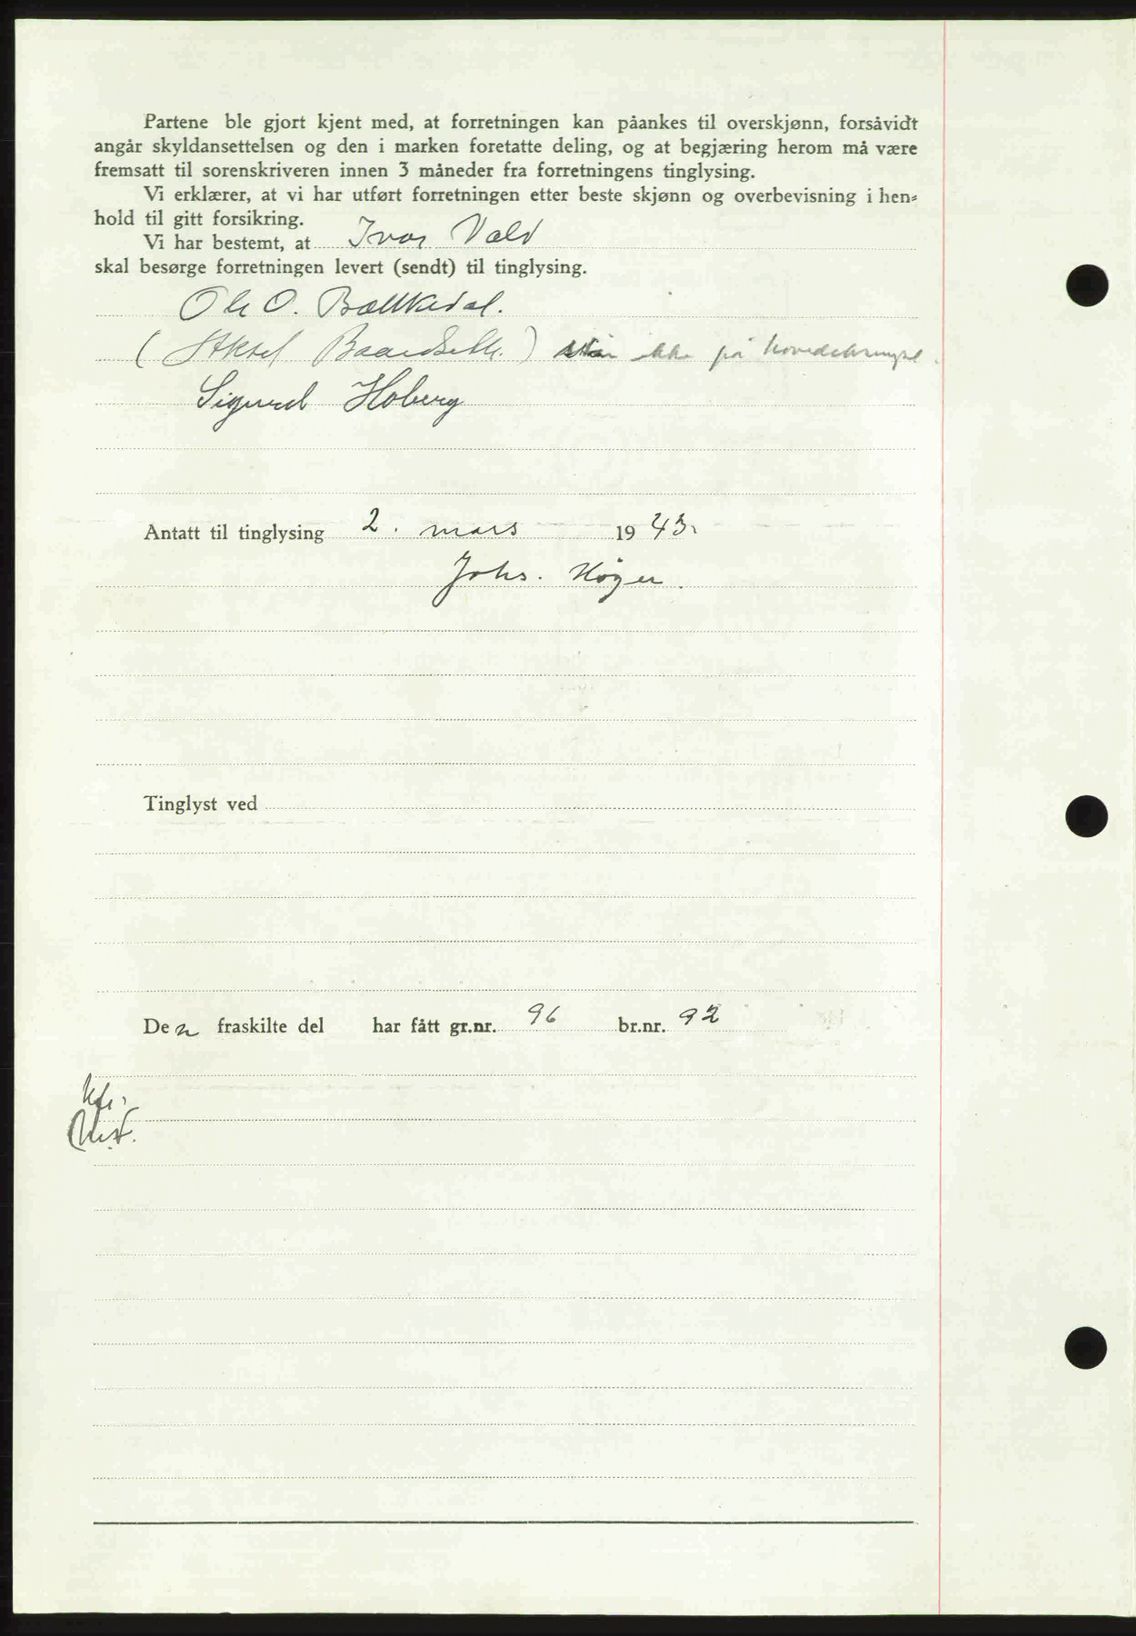 Partene ble gjort kjent med, at forretningen kan påankes til overskjønn, forsåvidt
angår skyldansettelsen og den i marken foretatte deling, og at begjæring herom må være
fremsatt til sorenskriveren innen 3 måneder fra forretningens tinglysing.
Vi erklærer, at vi har utført forretningen etter beste skjønn og overbevisning i hen-
hold til gitt forsikring.
Vi har bestemt, at Ivar Vald
skal besørge forretningen levert (sendt) til tinglysing.
Ole O.
( Aksel ) står ikke på
Sigurd Hoberg
Antatt til tinglysing 2. mars 1943.
Johs. Høyer.
Tinglyst ved
Den fraskilte del har fått gr.nr. 96 br.nr. 92